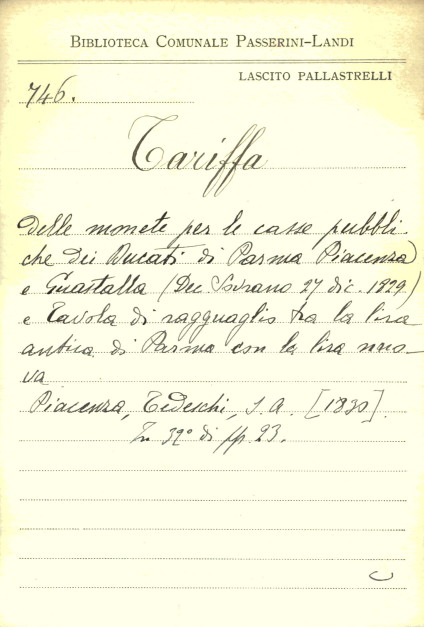 BIBLIOTECA COMUNALE PASSERINI-LANDI
LASCITO PALLASTRELLI
746.
Tariffa
delle monete per le casse pubbli-
che dei Ducati di Parma Piacenza
e Guastalla (Dec Sovrano 27 dic. 1829)
e Tavola di ragguaglio tra la lira
antica di Parma con la lira nuo-
va
Piacenza, Tedeschi, s. a. [1830].
In 32° di pp. 23.